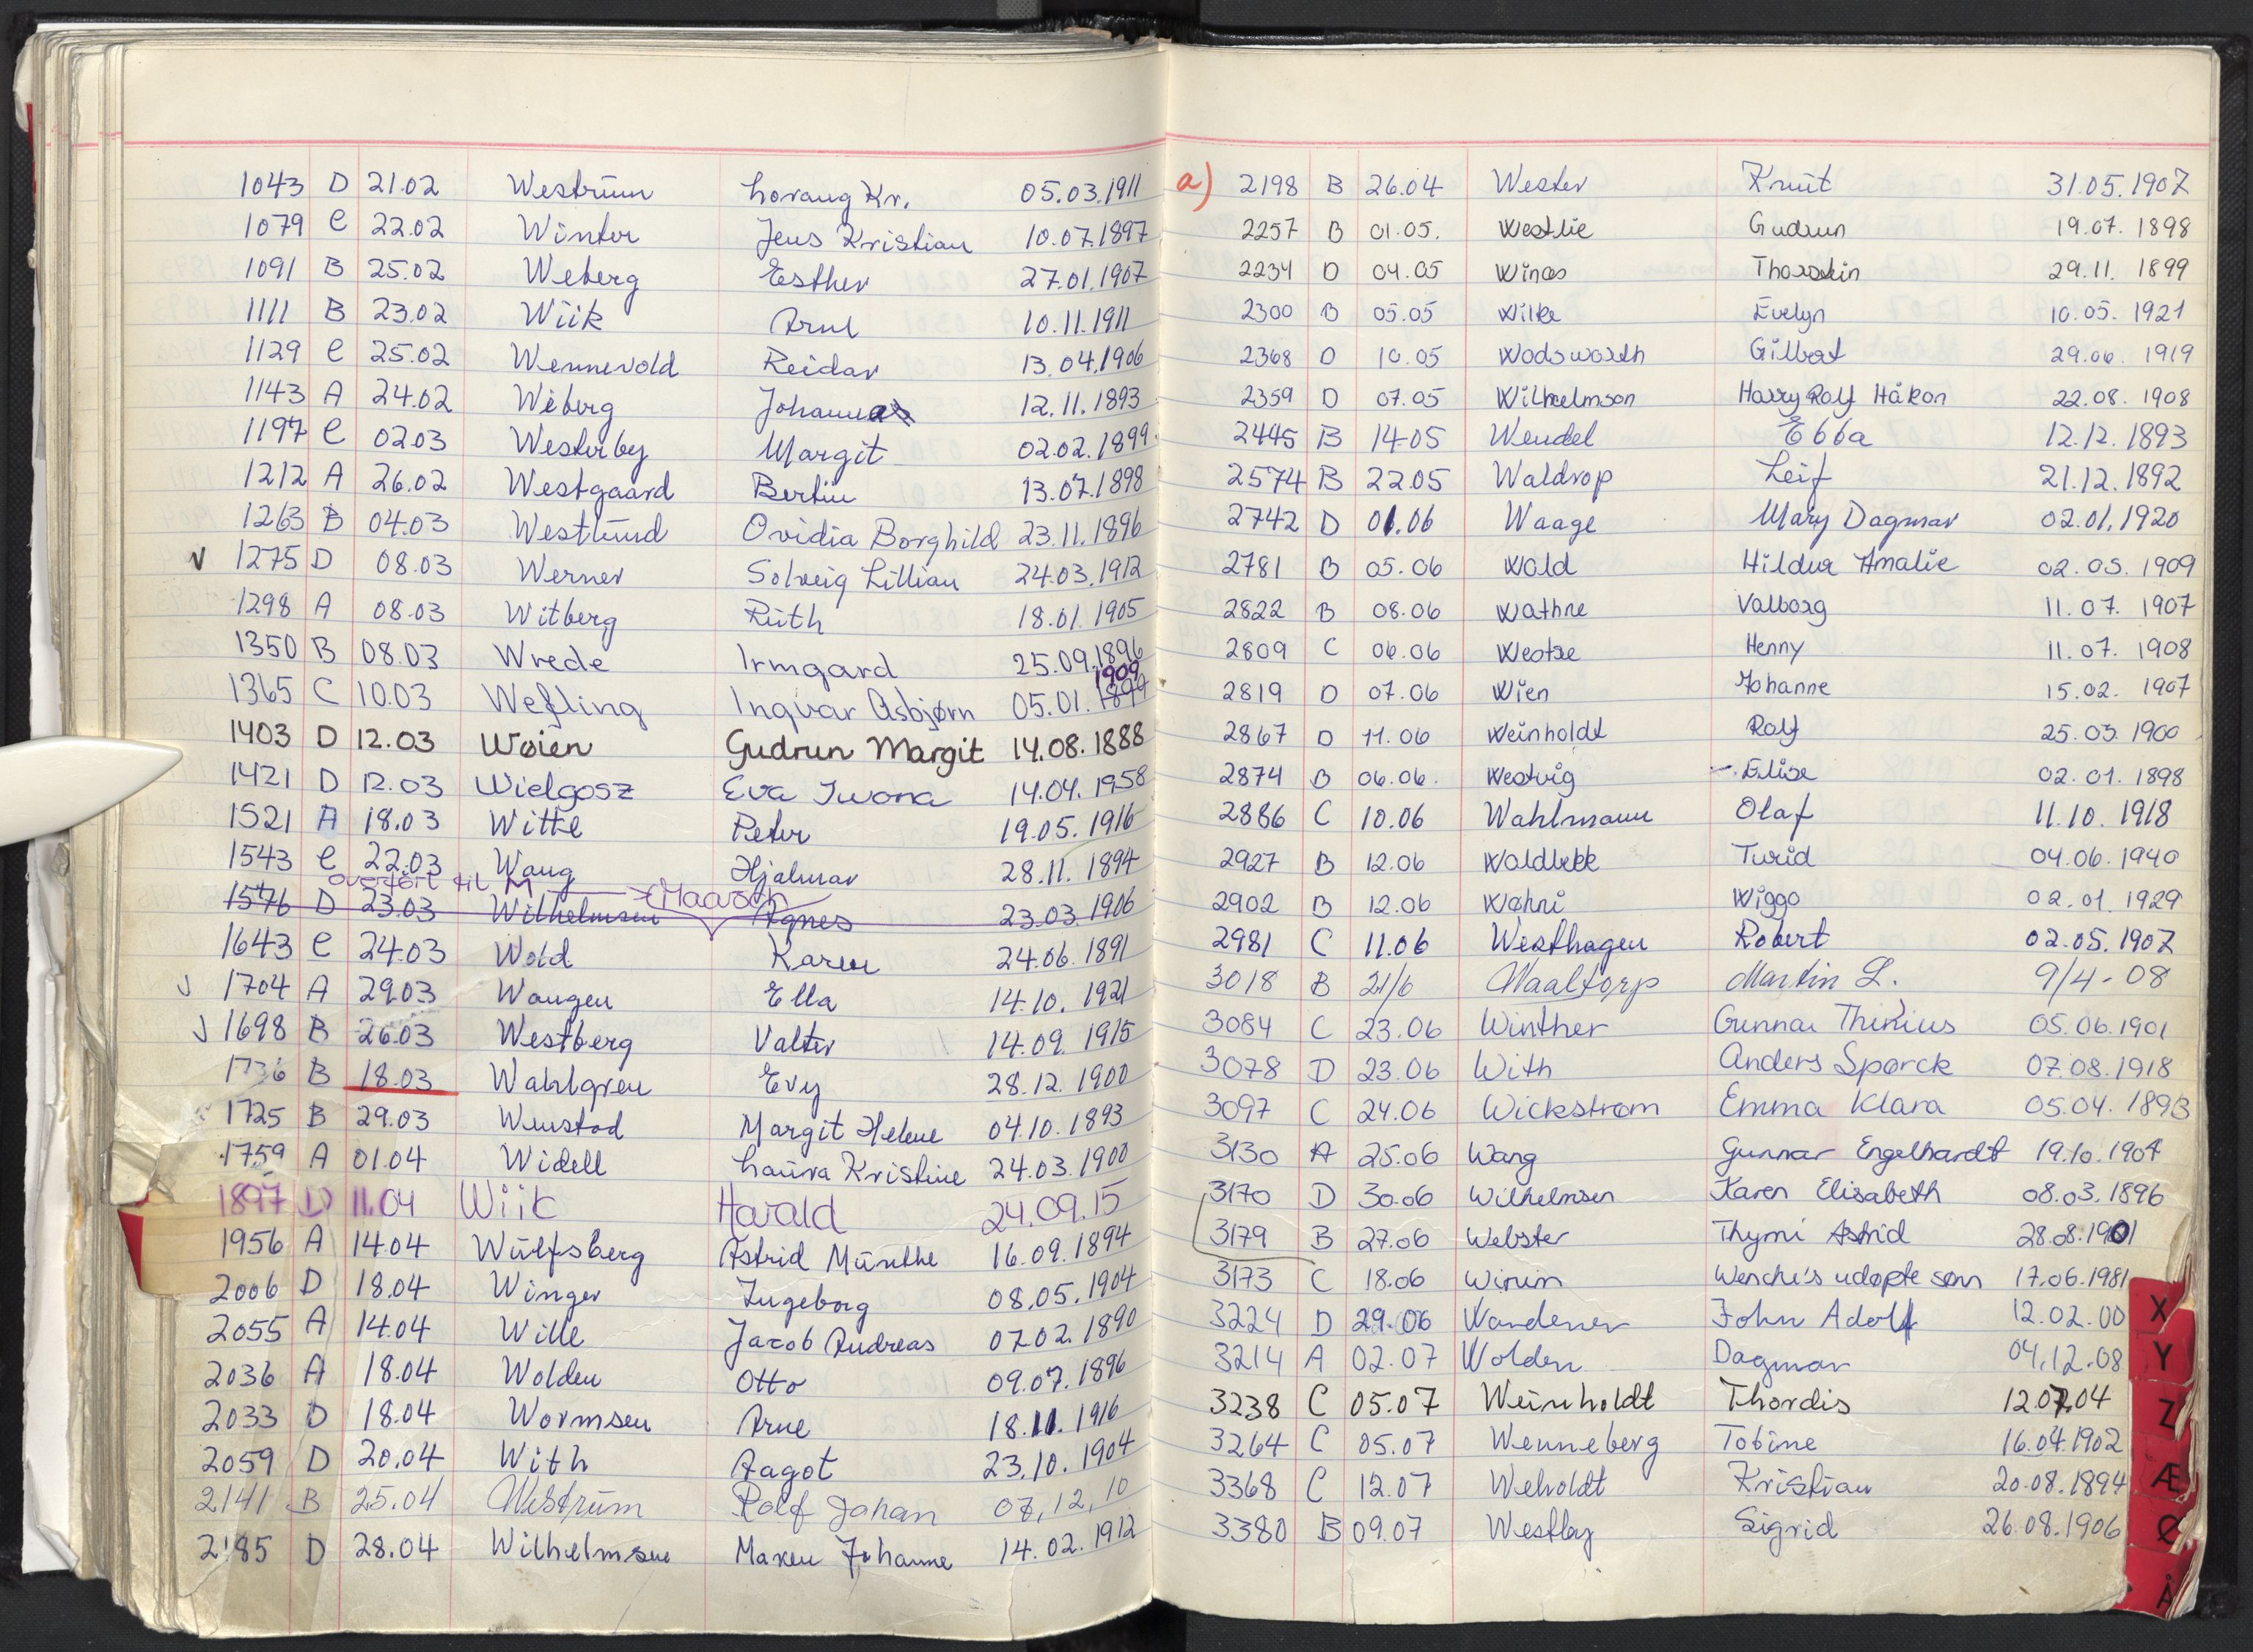 1043 D 21.02 Westrum Lorang Kr. 05.03.1911
1079 C 22.02 Winter Jens Kristian 10.07.1897
1091 B 25.02 Weberg Esther 27.01.1907
1111 B 23.02 Wiik Arne 10.11.1911
1129 C 25.02 Wennevold Reidar 13.04.1906
1143 A 24.02 Wiberg 12.11.1893
1197 C 02.03 Westerby Margit 02.02.1899.
1212 A 26.02 Westgaard Bertin 13.07.1898
1263 B 04.03 Westlund Ovidia Borghild 23.11.1896
1275 D 08.03 Werner Solveig Lillian 24.03.1912
1298 A 08.03 Witberg Ruth 18.01.1905
1350 B 08.03 Wrede Irmgard 25.09.1896
1909
1365 C 10.03 Wefling Ingvar Asbjørn 05.01.1899
1403 D 12.03 Woien Gudrun Margit 14.08.1888
1421 D 12.03 Wielgosz Eva Iwona 14.04.1958
1521 A 18.03 Witte Peter 19.05.1916
1543 C 22.03 Wang Hjalmar 28.11.1894
overført til M
1576 D 23.03 Wilhelmsen Agnes 23.03.1906
1643 C 24.03 Wold Karen 24.06.1891
1704 A 29.03 Wangen Ella 14.10.1921
1698 B 26.03 Westberg Valter 14.09.1915
1736 B 18.03 Wahlgren Evy 28.12.1900
1725 B 29.03 Wenstad Margit Helene 04.10.1893
1759 A 01.04 Widell Laura Kristine 24.03.1900
1897 D 11.04 Wiik Harald 24.09.15
1956 A 14.04 Wulfsberg Astrid Munthe 16.09.1894
2006 D 18.04 Winger Ingeborg 08.05.1904
2055 A 14.04 Wille Jacob Andreas 07.02.1890
2036 A 18.04 Wolden Otto 09.07.1896
2033 D 18.04 Wormsen Arne 18.11.1916
2059 D 20.04 With Aagot 23.10.1904
2141 B 25.04 Westrum Rolf Johan 07,12,10
2185 D 28.04 Wilhelmsen Maren Johanne 14.02.1912
a) 2198 B 26.04 Wester Knut 31.05.1907
2257 B 01.05. Westlie Gudrun 19.07.1898
2234 D 04.05 Winæs Thorstein 29.11.1899
2300 B 05.05 Wilke Evelyn 10.05.1921
2368 D 10.05 Wodsworth Gilbert 29.06.1919
2359 D 07.05 Wilhelmson Harry Rolf Håkon 22.08.1908
2445 B 14.05 Wendel Ebba 12.12.1893
2574 B 22.05 Waldrop Leif 21.12.1892
2742 D 01.06 Waage Mary Dagmar 02.01.1920
2781 B 05.06 Wold Hildur Amalie 02.05.1909
2822 B 08.06 Wathne Valborg 11.07.1907
2809 C 06.06 Henny 11.07.1908
2819 D 07.06 Wien Johanne 15.02.1907
2867 D 11.06 Weinholdt Rolf 25.03.1900
2874 B 06.06. Westvig Elise 02.01.1898
2886 C 10.06 Wahlmann Olaf 11.10.1918
2927 B 12.06 Waldbekk Turid 04.06.1940
2902 B 12.06 Wahri Wiggo 02.01.1929
2981 C 11.06 Westhagen Robert 02.05.1907
3018 B 21/6 Waaltorp Martin L. 9/4-08
3084 C 23.06 Winther Gunnar Thinius 05.06.1901
3078 D 23.06 With Anders Spørck 07.08.1918
3097 C 24.06 Wickstrøm Emma Klara 05.04.1893
3130 A 25.06 Wang Gunnar Engelhardt 19.10.1904
3170 D 30.06 Wilhelmsen Karen Elisabeth 08.03.1896
3179 B 27.06 Webster Thymi Astrid 28.08.1901
3173 C 18.06 Wirum Wenche's udøpte sønn 17.06.1981
3224 D 29.06 Wandener John Adolf 12.02.00
3214 A 02.07 Wolden Dagmar 04.12.08
3238 C 05.07 Weinholdt Thordis 12.07.04
3264 C 05.07 Wenneberg Tobine 16.04.1902
3368 C 12.07 Weholdt Kristian 20.08.1894
3380 B 09.07 Westby Sigrid 26.08.1906
X
Y
Z
Æ
Ø
Å